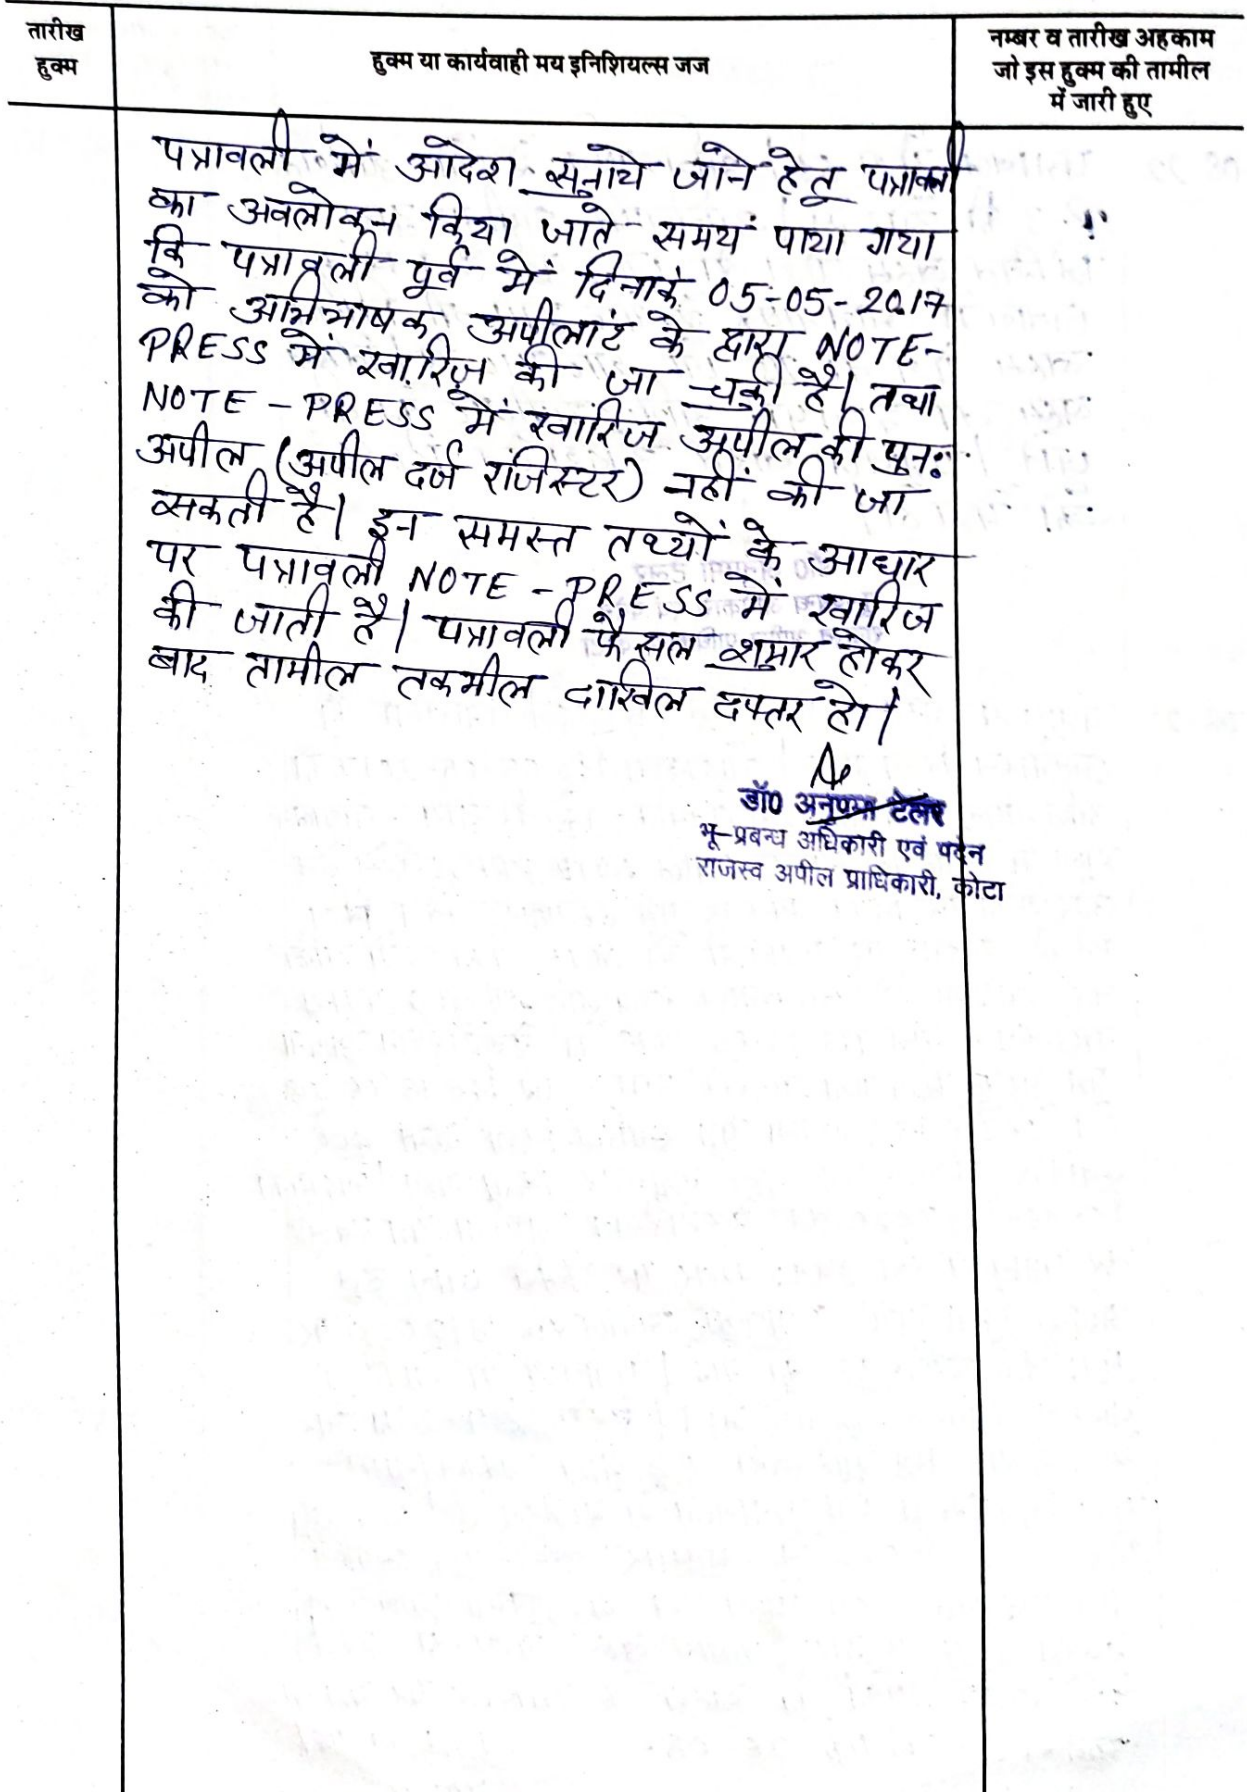 तारीख
हुक्म
हुक्म या कार्यवाही मय इनिशियल्स जज
नम्बर व तारीख अहकाम
जो इस हुक्म की तामील
में जारी हुए
पत्रावली में आदेश सुनाये जाने हेतु पत्रावली
का अवलोकन किया जाते समय पाया गया
कि पत्रावली पूर्व में दिनांक 05-05-2017
को अभिभाषक अपीलांट के द्वारा NOTE-
PRESS में खारिज की जा चुकी है। तथा
NOTE-PRESS में खारिज अपील की पुनः
अपील (अपील दर्ज रजिस्टर) नहीं की जा
सकती है। इन समस्त तथ्यों के आधार
पर पत्रावली NOTE-PRESS में खारिज
की जाती है। पत्रावली फैसल शुमार होकर
बाद तामील तकमील दाखिल दफ्तर हो।
डॉ0 अनुपमा टेलर
भू-प्रबन्ध अधिकारी एवं पदेन
राजस्व अपील प्राधिकारी, कोटा